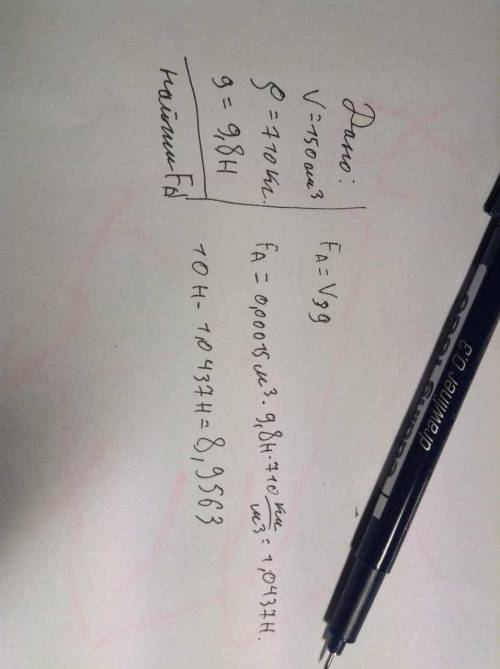 Дано:
V = 150 см³
ρ = 710 кг.
g = 9,8 Н
Найти: FA
FA = Vρg
FA = 0,00015 м³ · 9,8 Н · 710 кг/м³ = 1,0437 Н.
10 Н - 1,0437 Н = 8,9563
drawliner 0.3